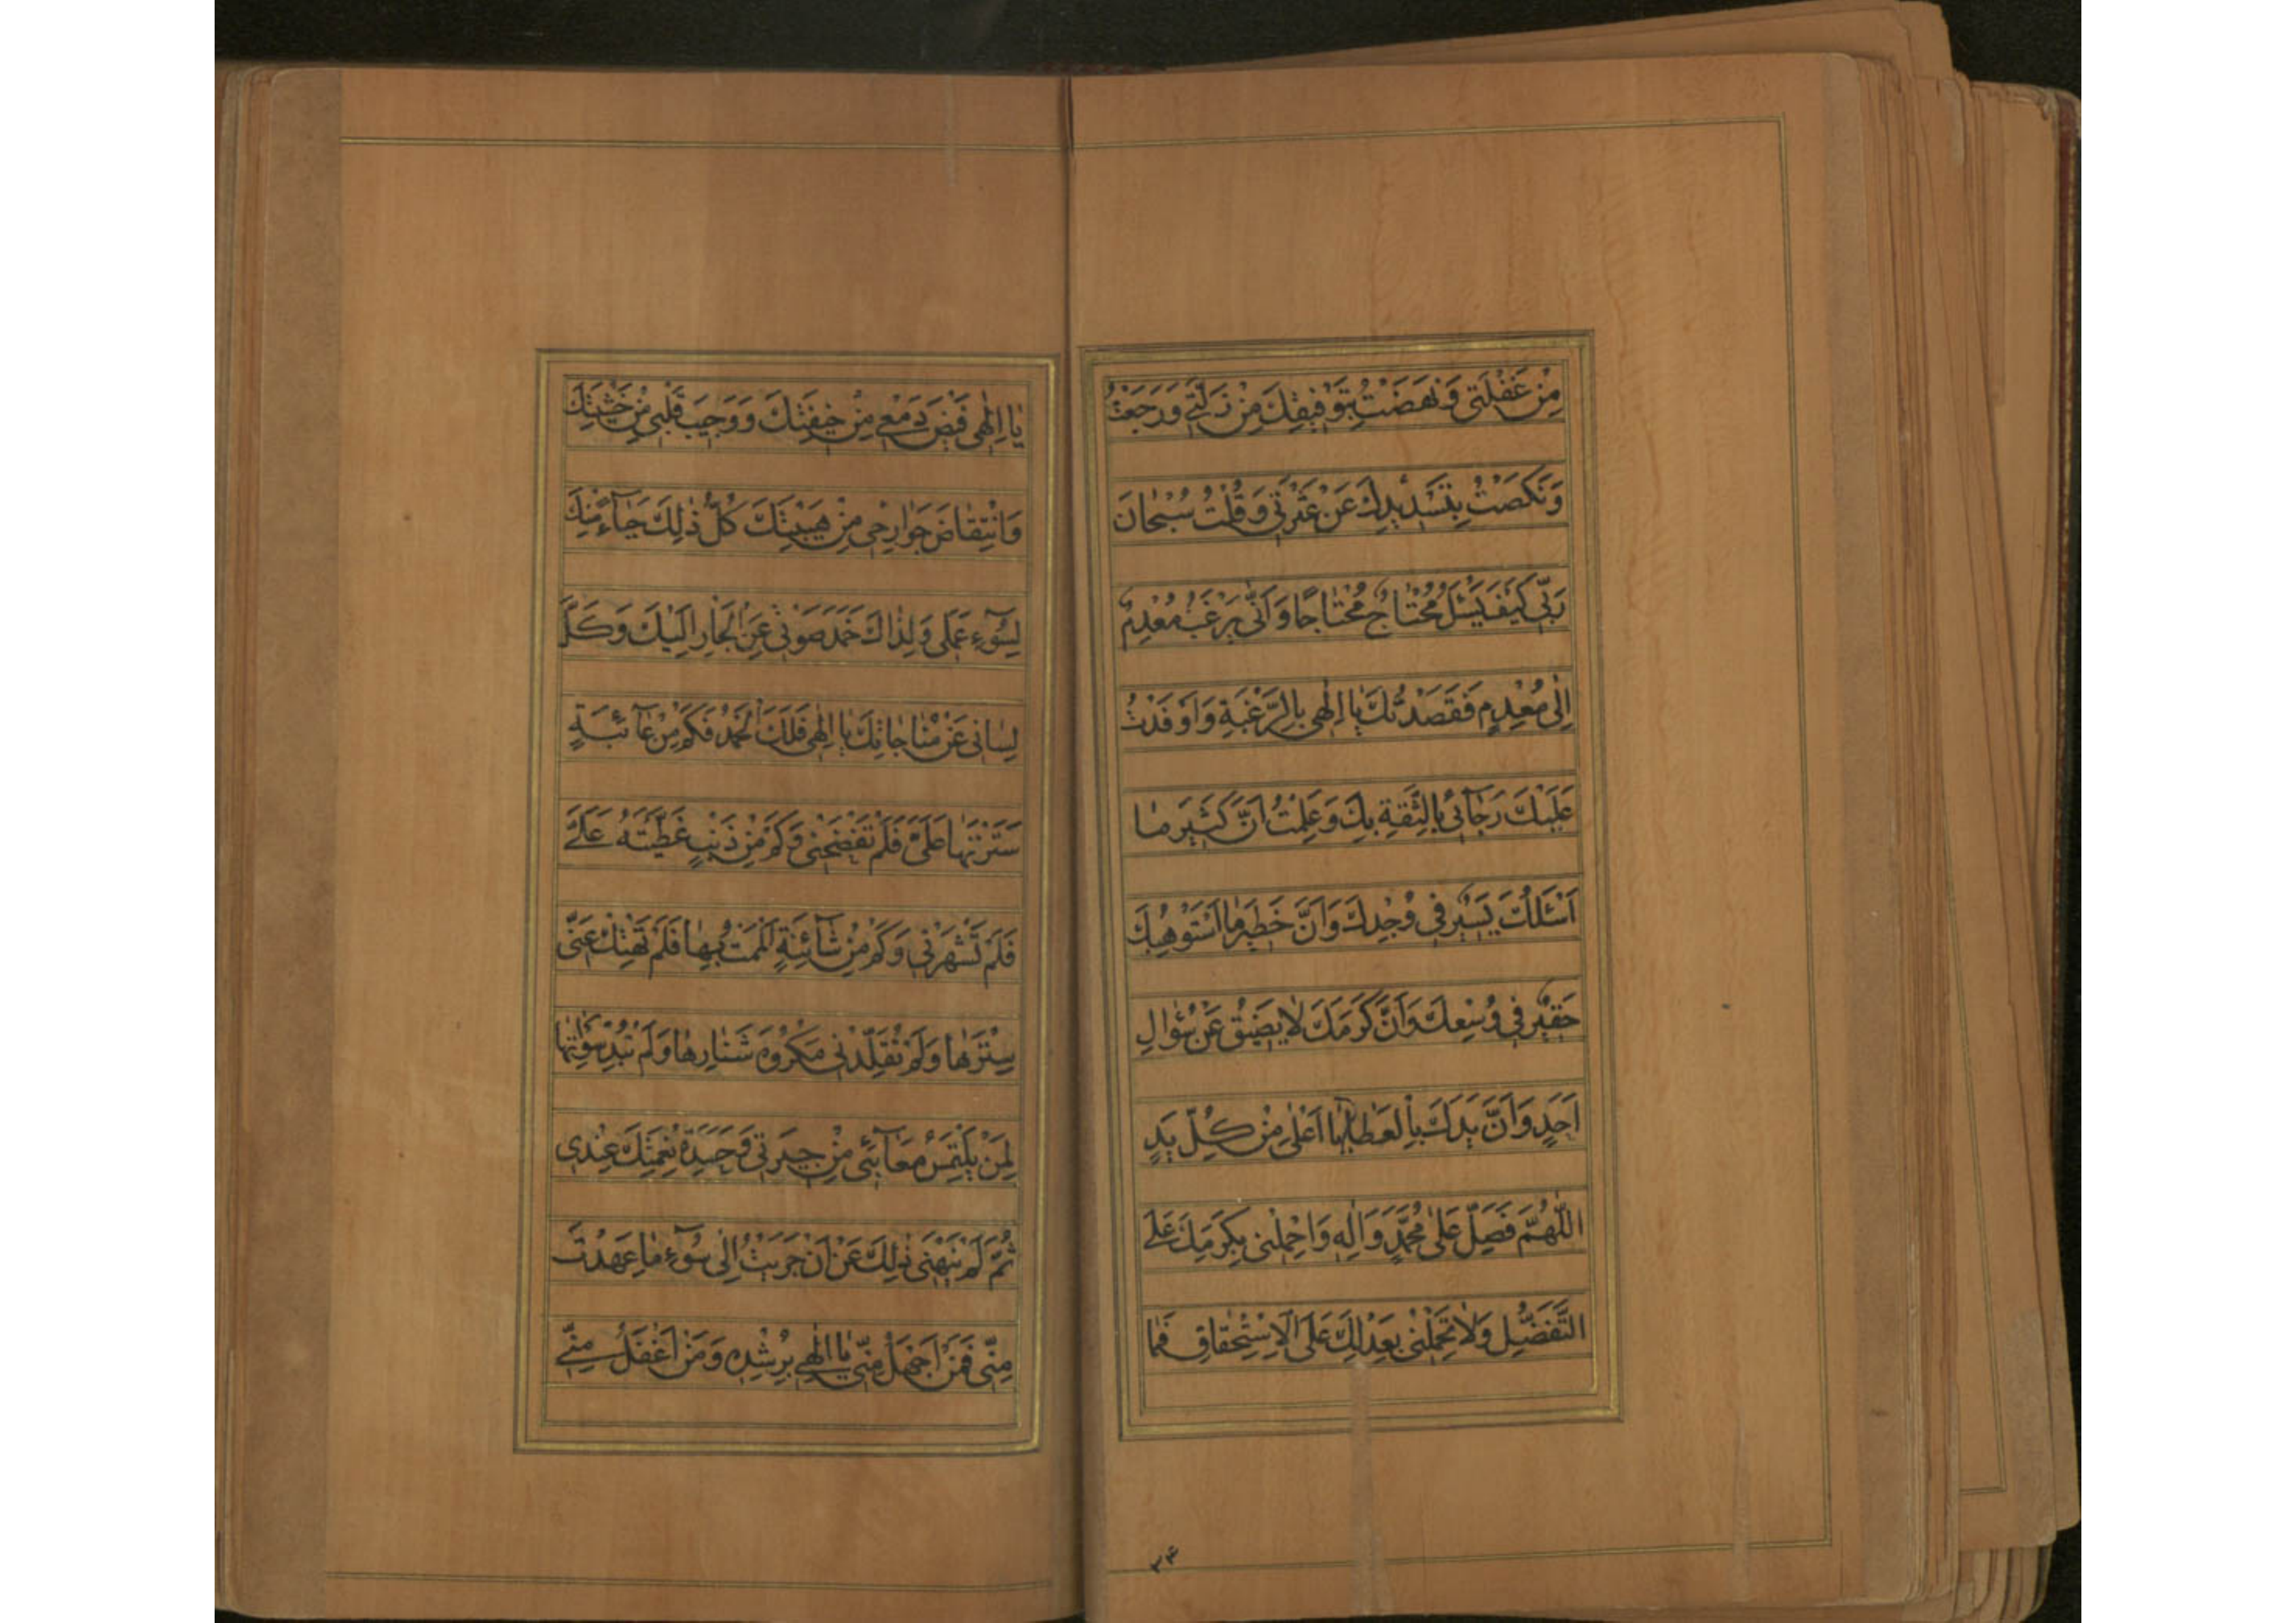 مِنْ غَفْلَتِي وَنَهَضْتُ بِتَوْفِيقِكَ مِنْ زَلَّتِي وَرَجَعْتُ
وَنَكَصْتُ بِتَسْدِيدِكَ عَنْ عَثْرَتِي وَقُلْتُ سُبْحَانَ
رَبِّي كَيْفَ يَسْئَلُ مُحْتَاجٌ مُحْتَاجًا وَاَنّٰى يَرْغَبُ مُعْدِمٌ
اِلٰى مُعْدِمٍ فَقَصَدْتُكَ يَا اِلٰهِي بِالرَّغْبَةِ وَاَوْفَدْتُ
عَلَيْكَ رَجَآئِي بِالثِّقَةِ بِكَ وَعَلِمْتُ اَنَّ كَثِيرَ مَا
اَسْئَلُكَ يَسِيرٌ فِي وُجْدِكَ وَاَنَّ خَطِيرَ مَا اَسْتَوْهِبُكَ
حَقِيرٌ فِي وُسْعِكَ وَاَنَّ كَرَمَكَ لَا يَضِيقُ عَنْ سُؤَالِ
اَحَدٍ وَاَنَّ يَدَكَ بِالْعَطَايَا اَعْلٰى مِنْ كُلِّ يَدٍ
اَللّٰهُمَّ فَصَلِّ عَلٰى مُحَمَّدٍ وَاٰلِهِ وَاحْمِلْنِي بِكَرَمِكَ عَلَى
التَّفَضُّلِ وَلَا تَحْمِلْنِي بِعَدْلِكَ عَلَى الْاِسْتِحْقَاقِ فَمَا
۲۴
يَا اِلٰهِي فَيْضَ دَمْعِي مِنْ خِيفَتِكَ وَوَجِيبَ قَلْبِي مِنْ خَشْيَتِكَ
وَانْتِقَاضَ جَوَارِحِي مِنْ هَيْبَتِكَ كُلُّ ذٰلِكَ حَيَآءً مِنْكَ
لِسُوٓءِ عَمَلِي وَلِذَاكَ خَمَدَ صَوْتِي عَنِ الْجَارِ اِلَيْكَ وَكَلَّ
لِسَانِي عَنْ مُنَاجَاتِكَ يَا اِلٰهِي فَلَكَ الْحَمْدُ فَكَمْ مِنْ عَآئِبَةٍ
سَتَرْتَهَا عَلَيَّ فَلَمْ تَفْضَحْنِي وَكَمْ مِنْ ذَنْبٍ غَطَّيْتَهُ عَلَيَّ
فَلَمْ تَشْهَرْنِي وَكَمْ مِنْ شَآئِبَةٍ اَلْمَمْتُ بِهَا فَلَمْ تَهْتِكْ عَنِّي
سِتْرَهَا وَلَمْ تُقَلِّدْنِي مَكْرُوهَ شَنَارِهَا وَلَمْ تُبْدِ سَوْاٰتِهَا
لِمَنْ يَلْتَمِسُ مَعَآئِبِي مِنْ جِيرَتِي وَحَسَدَةِ نِعْمَتِكَ عِنْدِي
ثُمَّ لَمْ يَنْهَنِي ذٰلِكَ عَنْ اَنْ جَرَيْتُ اِلٰى سُوٓءِ مَا عَهِدْتَ
مِنِّي فَمَنْ اَجْهَلُ مِنِّي يَا اِلٰهِي بِرُشْدِهِ وَمَنْ اَغْفَلُ مِنِّي